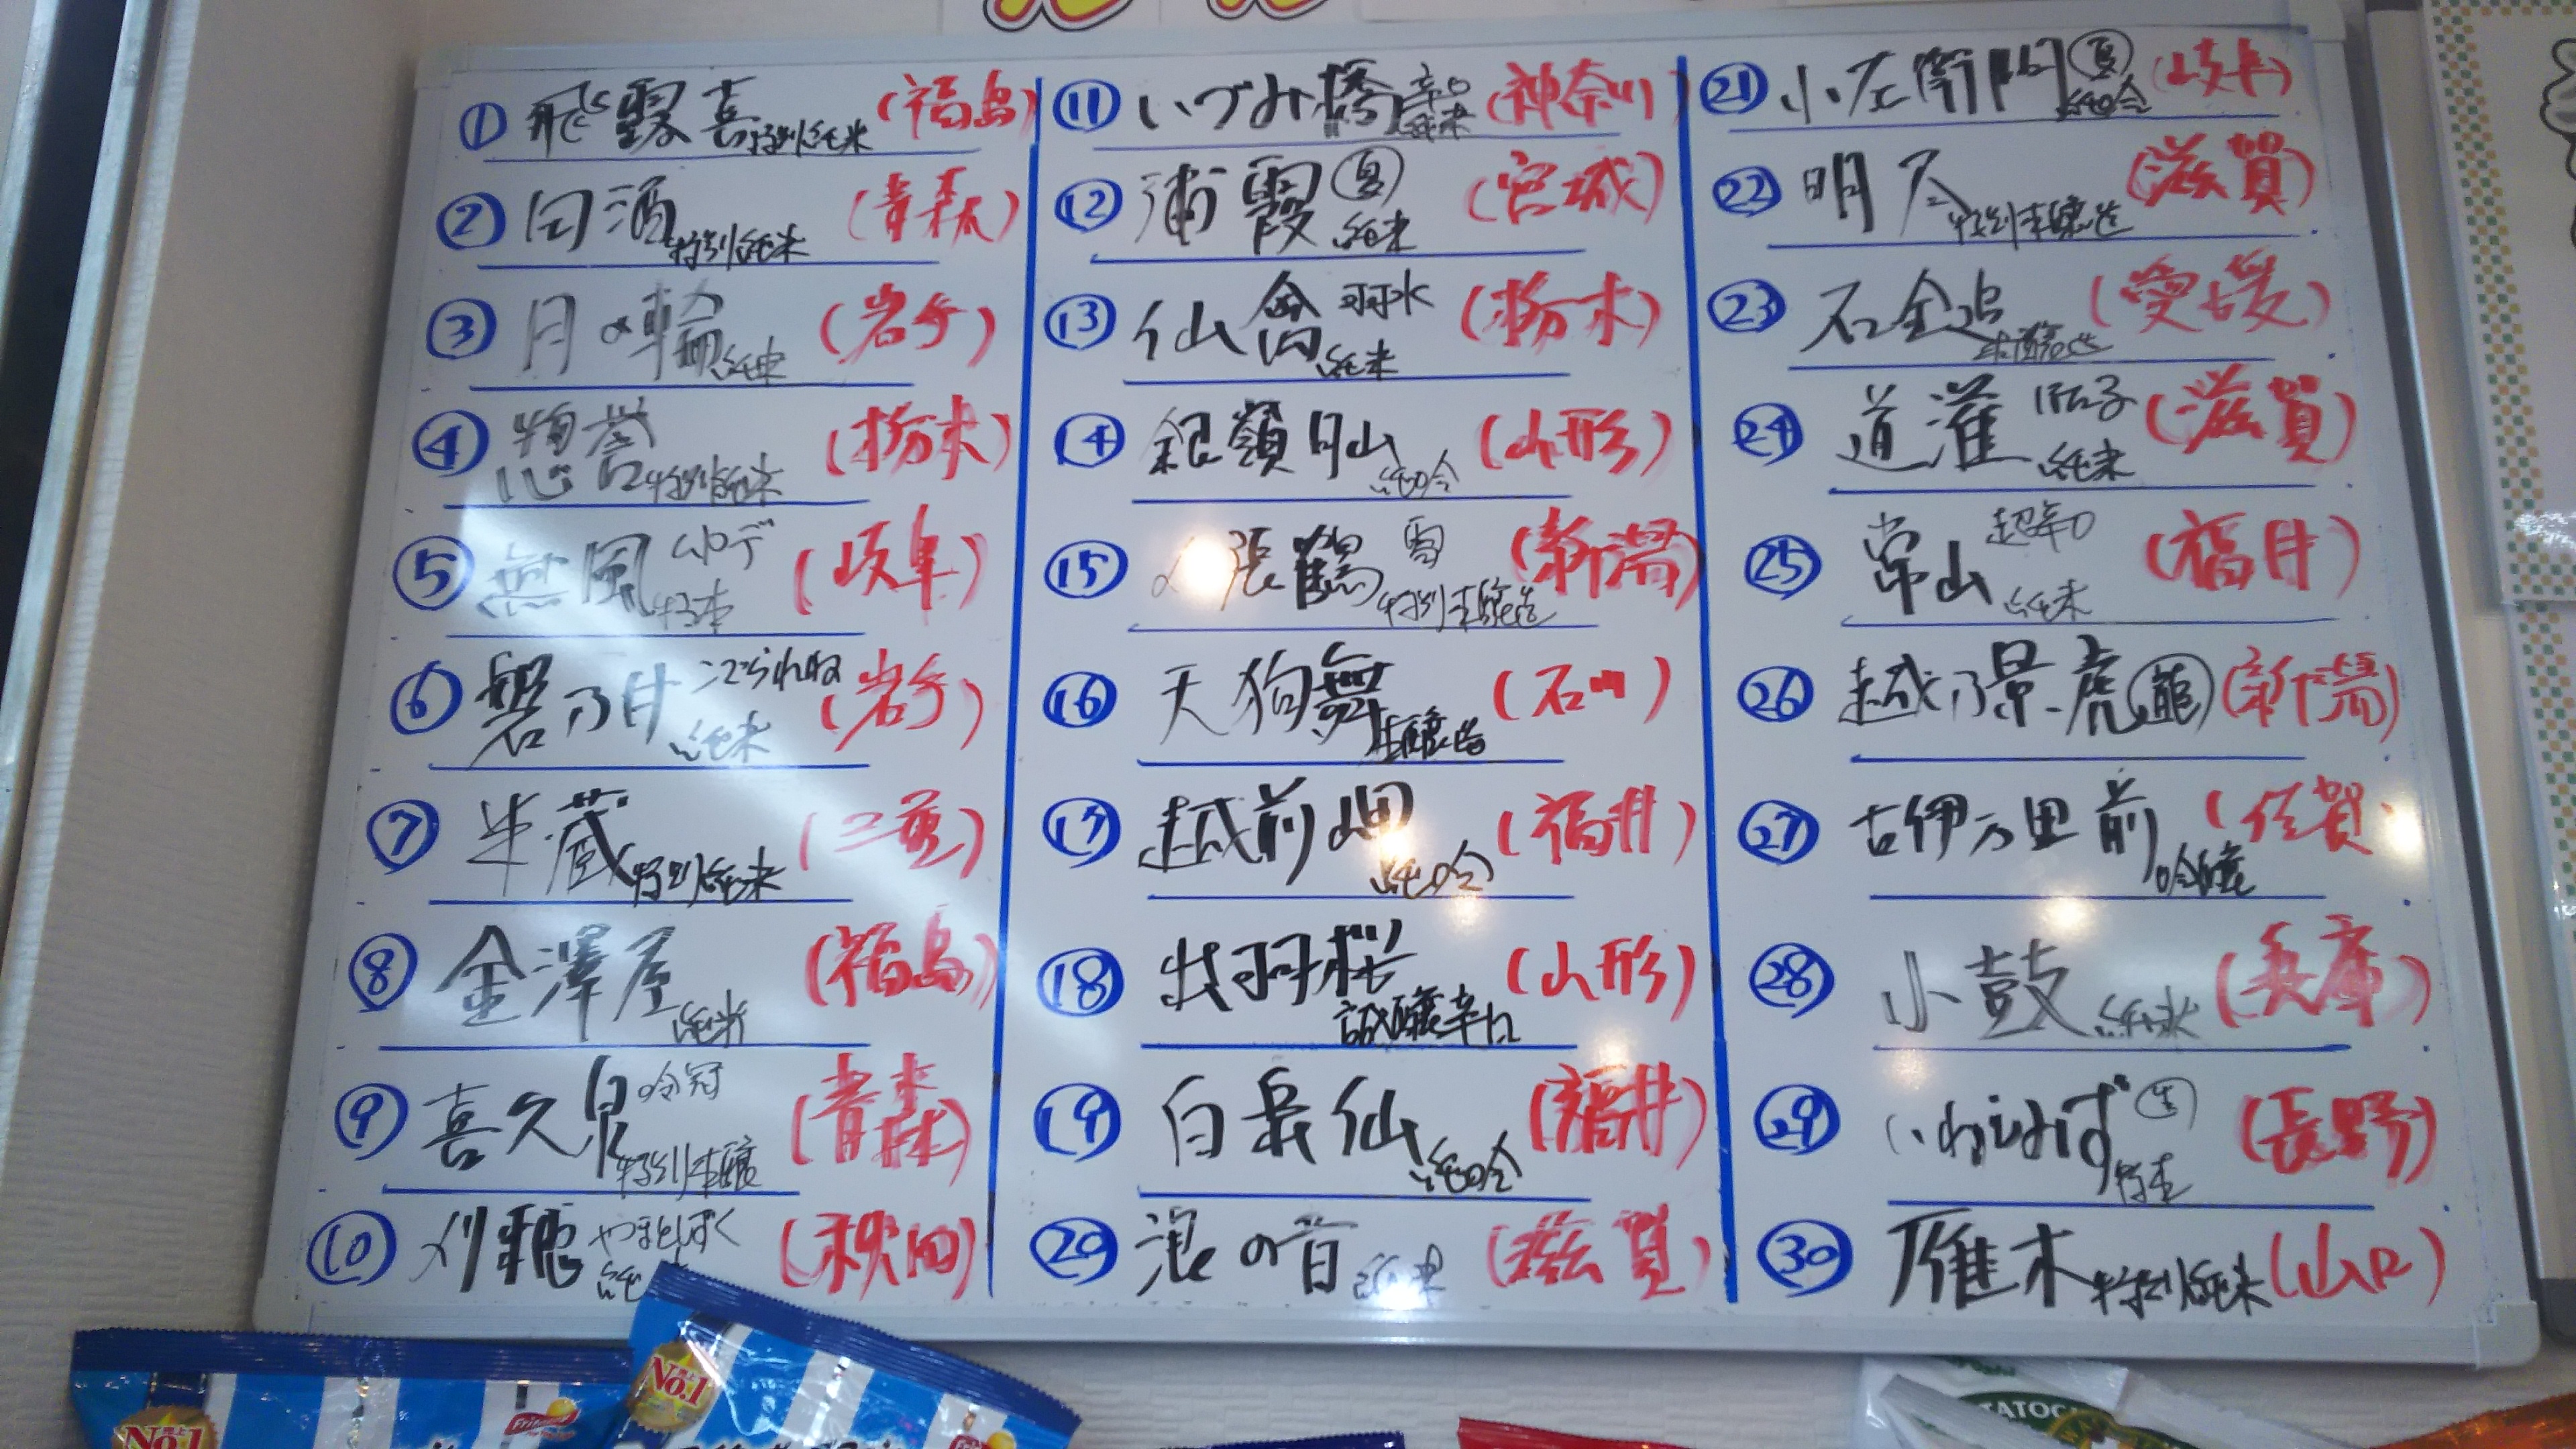 ① 飛露喜 特別純米 (福島)
② 田酒 特別純米 (青森)
③ 月の輪 純米 (岩手)
④ 惣誉 特別純米 (栃木)
⑤ 無風 特本 (岐阜)
⑥ 磐乃井 こでられね 純米 (岩手)
⑦ 半蔵 特別純米 (三重)
⑧ 金澤屋 純米 (福島)
⑨ 喜久泉 吟冠 特別本醸 (青森)
⑩ 刈穂 やまとしずく (秋田)
⑪ いづみ橋 辛口 純米 (神奈川)
⑫ 浦霞 夏 純米 (宮城)
⑬ 仙禽 純米 (栃木)
⑭ 銀嶺月山 純吟 (山形)
⑮ 〆張鶴 雪 特別本醸造 (新潟)
⑯ 天狗舞 本醸造 (石川)
⑰ 越前岬 純吟 (福井)
⑱ 出羽桜 誠醸辛口 (山形)
⑲ 白岳仙 純吟 (福井)
⑳ 浪の音 純米 (滋賀)
㉑ 小左衛門 夏 純吟 (岐阜)
㉒ 明尽 特別本醸造 (滋賀)
㉓ 石鎚 本醸造 (愛媛)
㉔ 道灌 純米 (滋賀)
㉕ 常山 超辛口 純米 (福井)
㉖ 越乃景虎 龍 (新潟)
㉗ 古伊万里 前 吟醸 (佐賀)
㉘ 小鼓 純米 (兵庫)
㉙ いわしみず 生 特本 (長野)
㉚ 雁木 特別純米 (山口)
No.1
No.1
Frito
TATOC